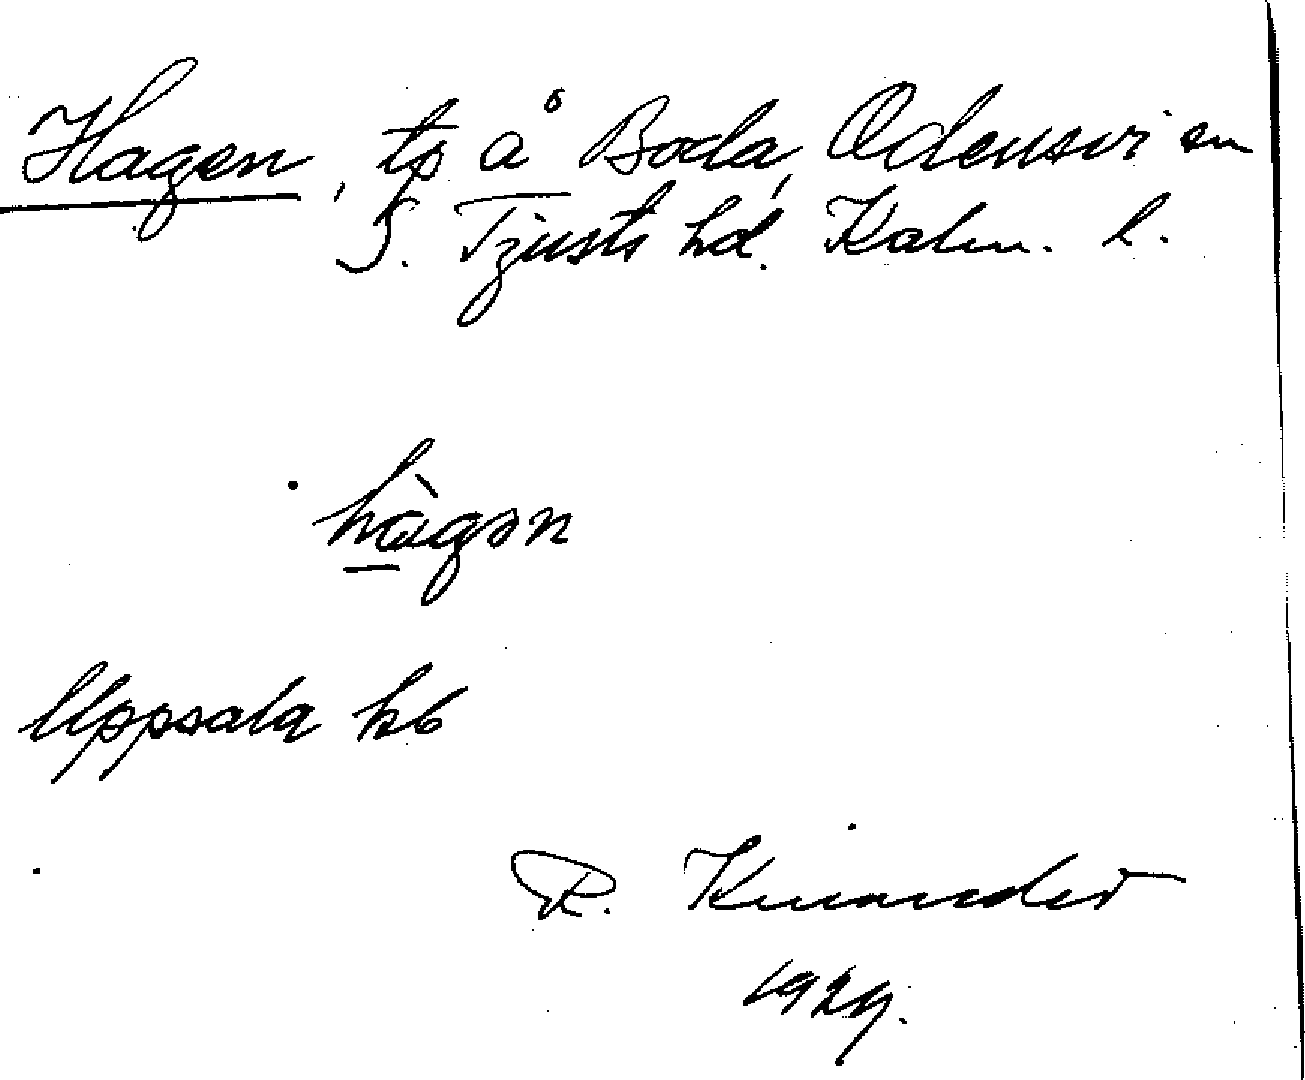 Hagen, ts å Boda, Odensvi sn
S. Tjusts hd. Kalm. l.
hàgən
Uppsala kb
R. Kinander
1929.